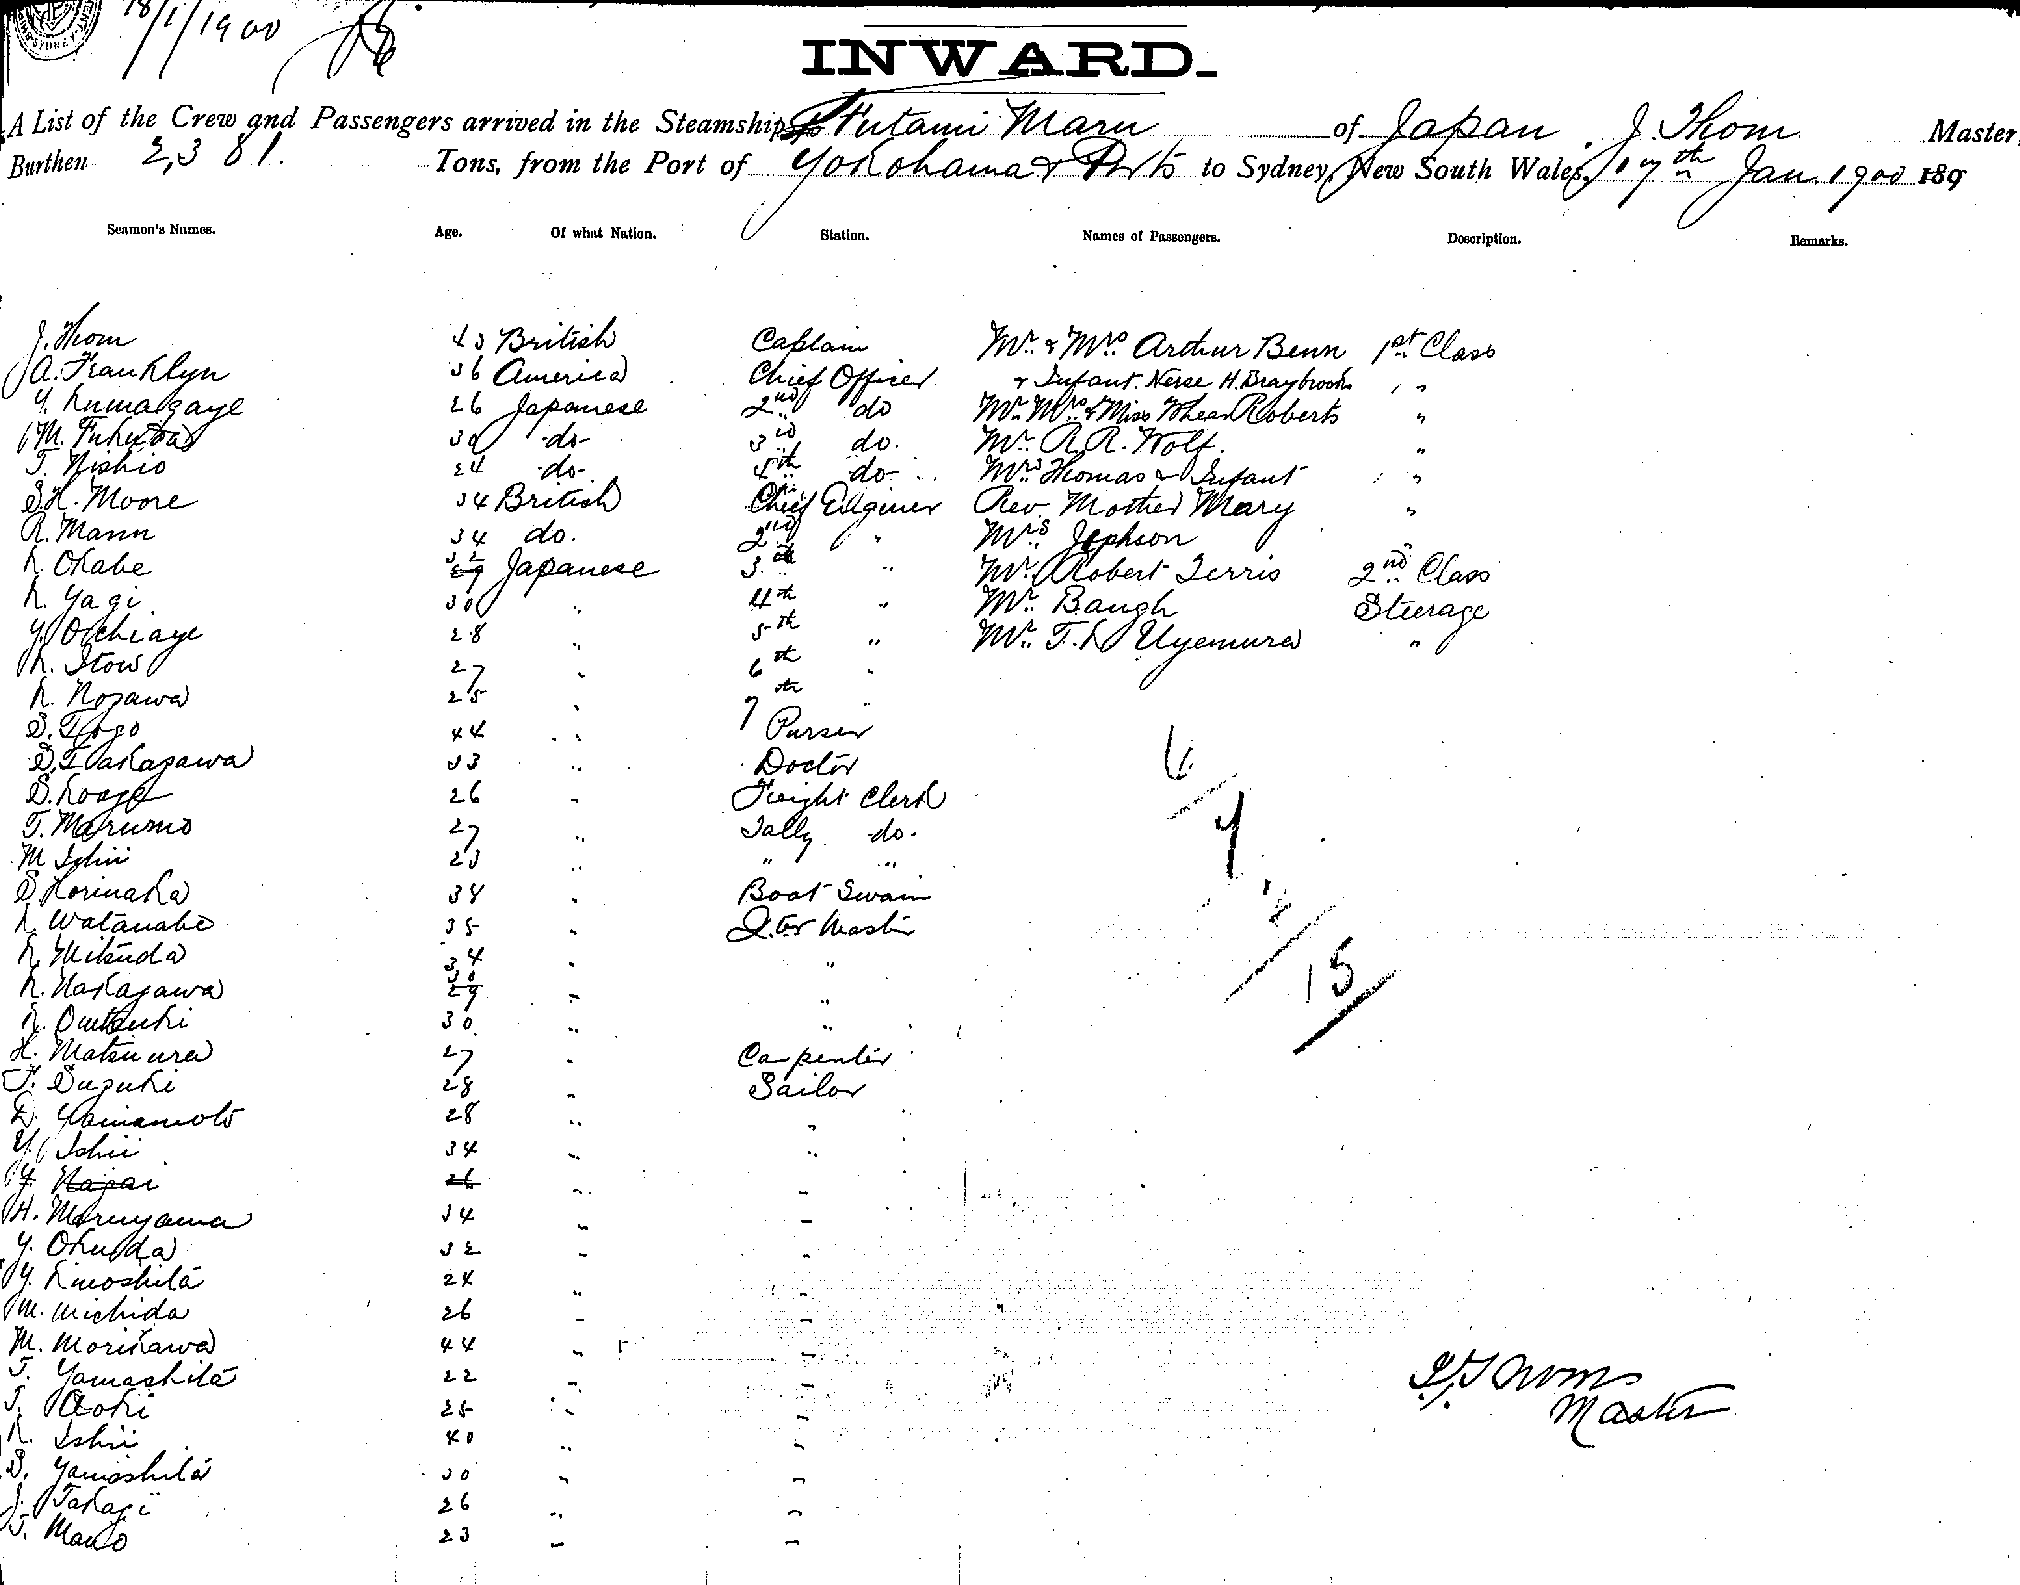 18/1/1900
INWARD.
A List of the Crew and Passengers arrived in the Steamship Futami Maru of Japan, J. Thom Master,
Burthen 2,381. Tons, from the Port of Yokohama & Ports to Sydney, New South Wales, 17th Jan. 1900 189
Seamen's Names. Age. Of what Nation. Station. Names of Passengers. Description. Remarks.
J. Thom 43 British Captain Mr. & Mrs Arthur Benn 1st Class
A. Franklyn 36 America Chief Officer & Infant. Nurse H. Braybrook " "
Y. Kumagaye 26 Japanese 2nd do Mr. Mrs & Miss Rhead Roberts "
M. 30 -do- 3rd do. Mr. R. R. Wolf. "
T. Nishio 24 -do- 4th do- Mrs Thomas & Infant " "
S. H. Moore 34 British Chief Enginer Rev. Mother Mary "
R. Mann 34 do. 2nd " Mrs Jephson "
K. Okabe 32 29 Japanese 3rd " Mr. Robert Ferris 2nd Class
K. Yagi 30 " 4th " Mr. Baugh Steerage
Y. Ochiaye 28 " 5th " Mr. T. K. Uyemura "
K. Itow 27 " 6th "
K. Nozawa 25 " 7th "
S. Togo 44 " Purser
S. Takagawa 33 " Doctor
S. Koage 26 " Freight Clerk
T. Marumo 27 " Tally do.
M Ishii 23 " " "
S. Horinaka 34 " Boat Swain
K. Watanabe 35 " Qter Master
K. Mitsuda 34 " "
K. Nakagawa 30 29 " "
K. 30 " "
H. Matsuura 27 " Carpenter
T. Suzuki 28 " Sailor
D. Yamamoto 28 " "
Y. Ishii 34 " "
Y. Nagai 26 " "
H. Maruyama 34 " "
Y. Okuda 32 " "
Y. Kinoshita 24 " "
M. Michida 26 " "
M. Morikawa 44 " "
T. Yamashita 22 " "
T. Aoki 25 " "
K. Ishii 40 " "
S. Yamashita 30 " "
J. Takagi 26 " "
T. Mano 23 " "
15
J. Thom
Master